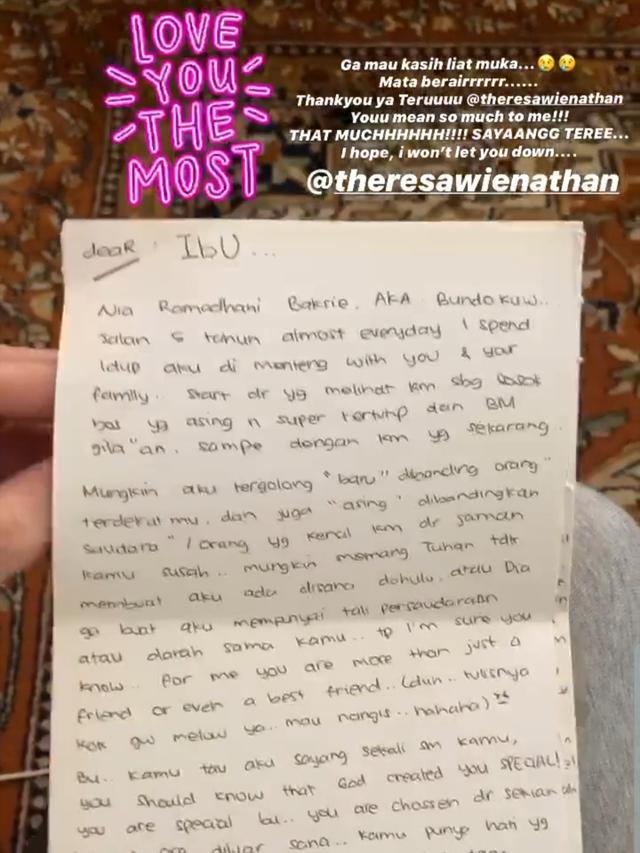 LOVE
YOU
THE
MOST
Ga mau kasih liat muka...😢😢
Mata berairrrrrr......
Thankyou ya Teruuuu @theresawienathan
Youu mean so much to me!!!
THAT MUCHHHHHH!!!! SAYAANGG TEREE...
I hope, i won't let you down....
@theresawienathan
dear IbU ...
Nia Ramadhani Bakrie. AKA Bundokuw..
Jalan 5 tahun almost everyday I spend
Idup aku di Menteng with you & your
family.. start dr yg melihat km sbg sosok
yg asing n super tertutup dan BM
gila"an. sampe dengan km yg sekarang.
Mungkin aku tergolong "baru" dibanding orang"
terdekatmu. dan juga "asing" dibandingkan
saudara" / orang yg kenal km dr jaman
kamu susah.. mungkin memang Tuhan tdk
membuat aku ada disana dahulu. atau Dia
ga buat aku mempunyai tali persaudaraan
atau darah sama kamu.. tp I'm sure you
know.. For me you are more than just a
friend or even a best friend.. (duh.. tulisnya
kok gw melow ya.. mau nangis.. hahaha)
Bu.. kamu tau aku sayang sekali sm kamu,
you should know that God created you SPECIAL!
you are special bu.. you are chossen dr sekian
diluar sana.. kamu punya hati yg